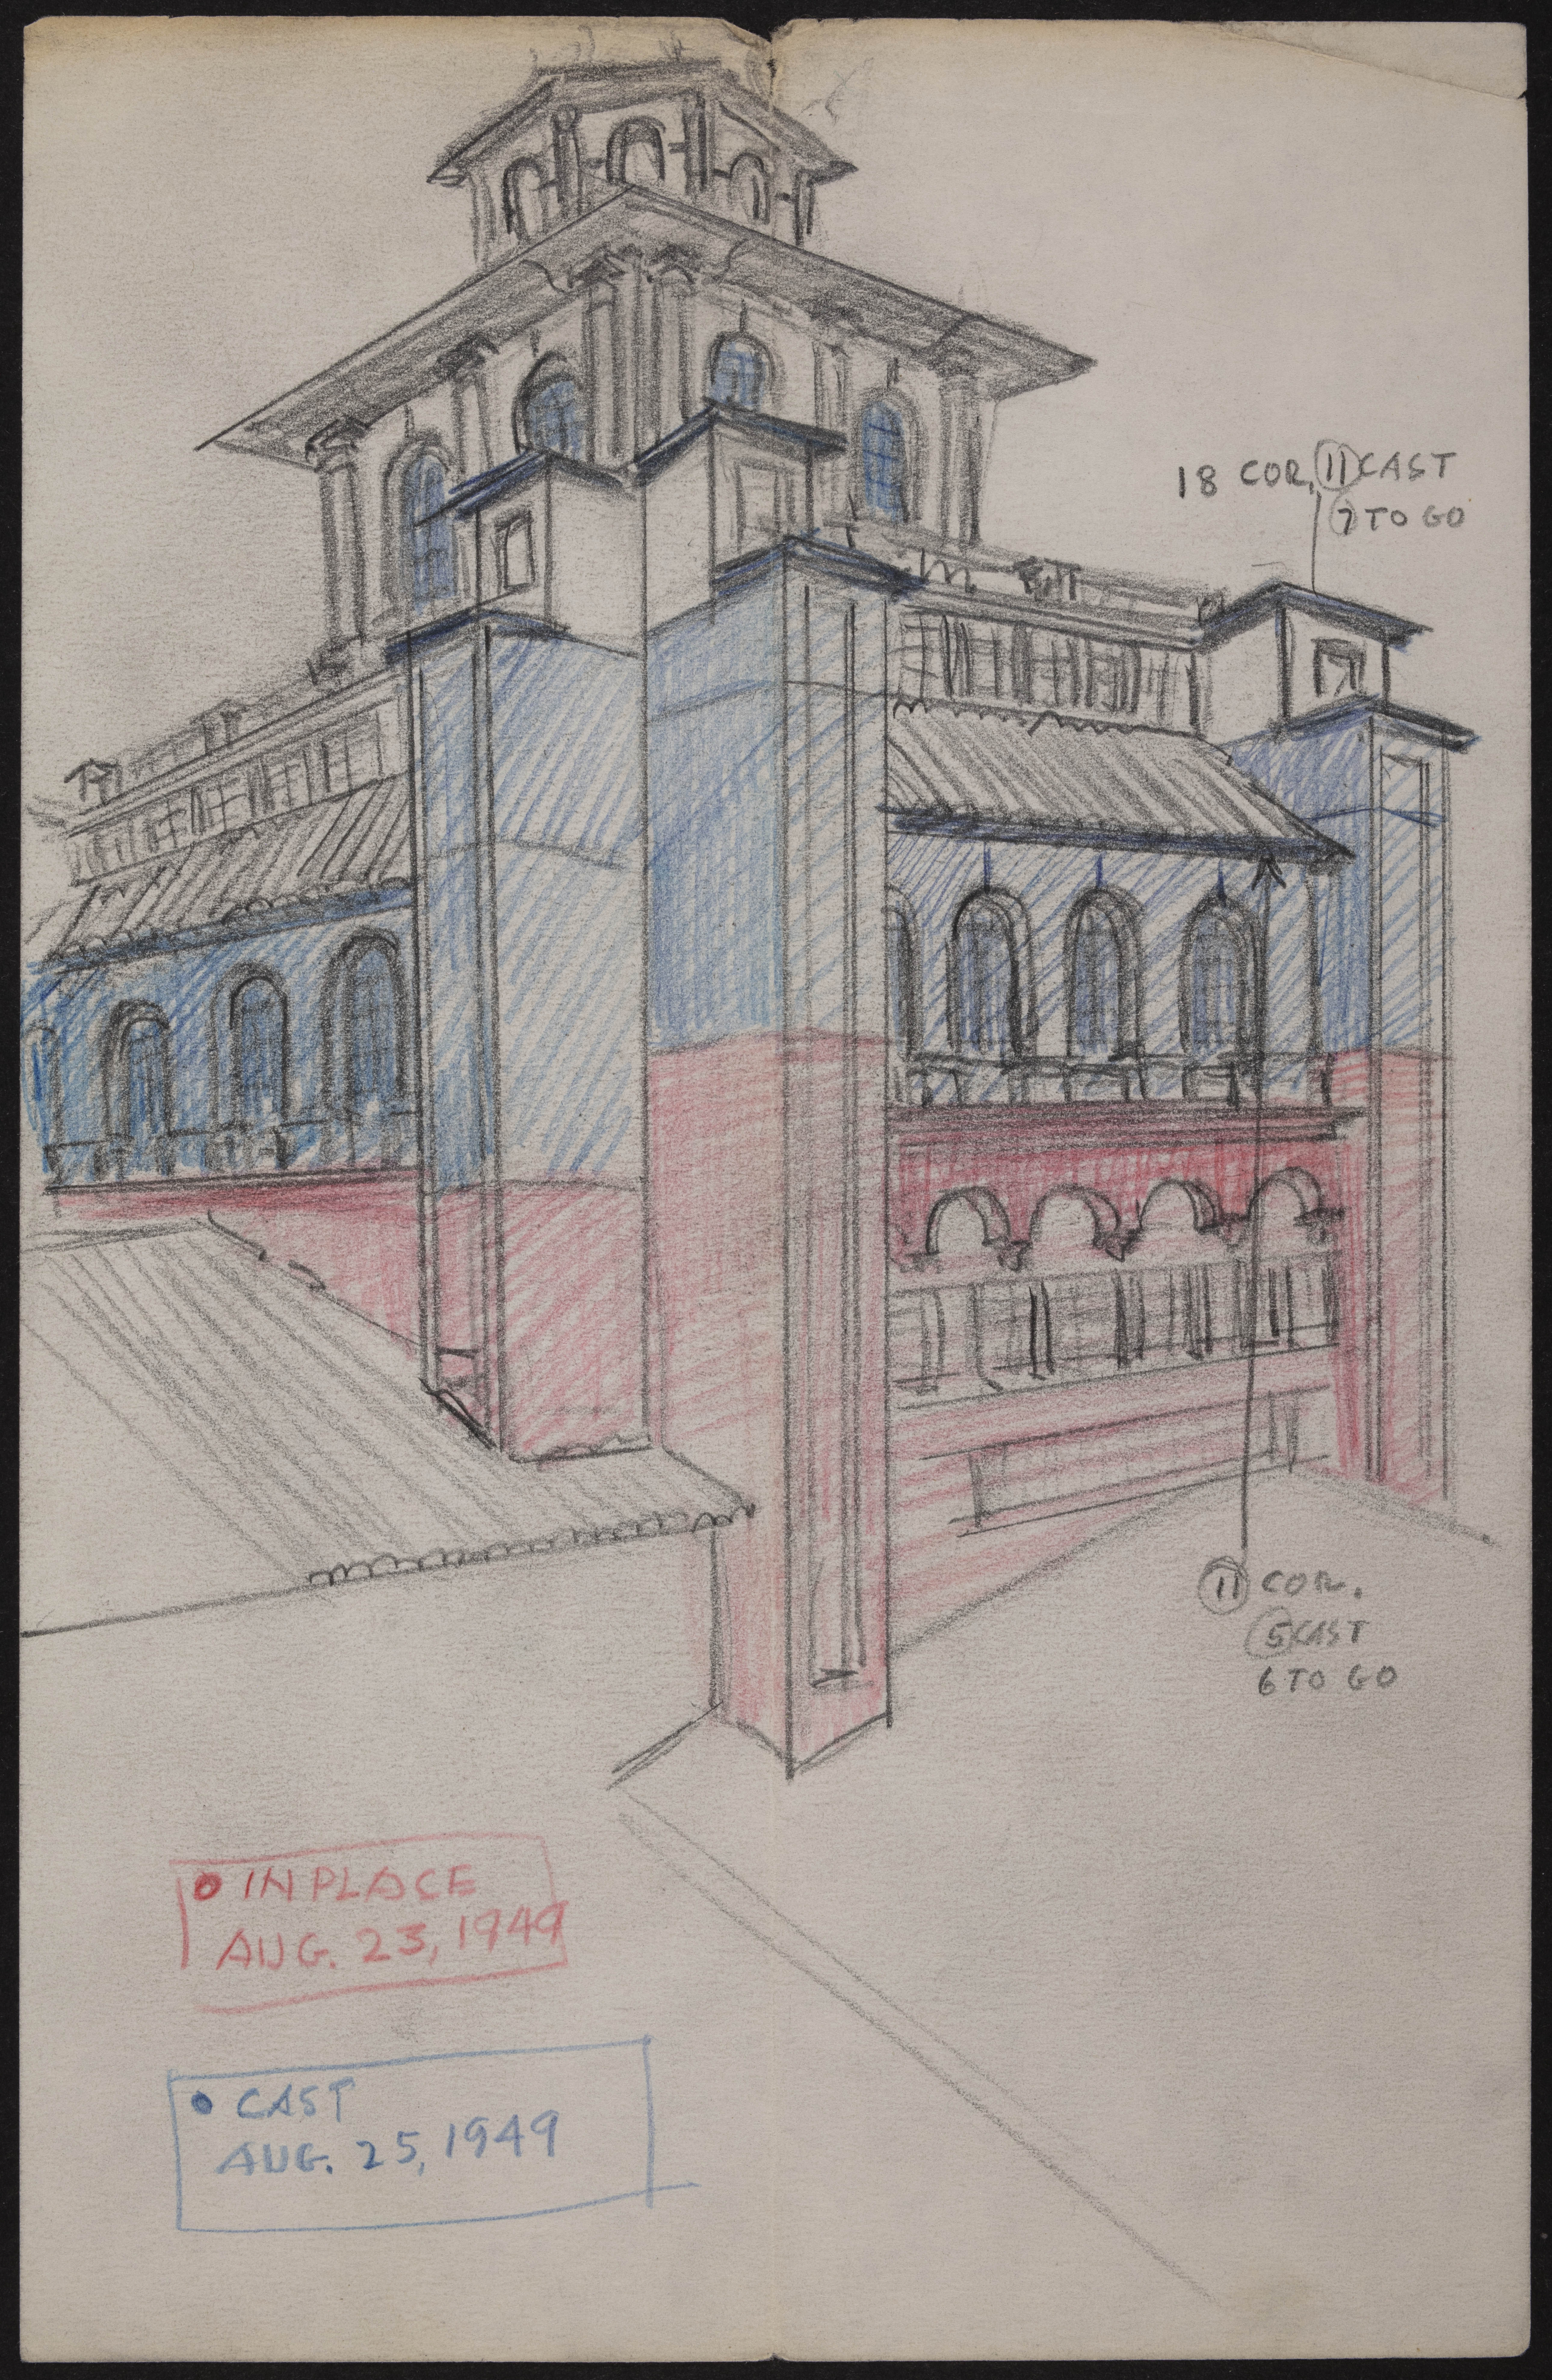 18 COR. 11 CAST
7 TO GO
11 COR.
5 CAST
6 TO GO
• IN PLACE
AUG. 23, 1949
• CAST
AUG. 25, 1949